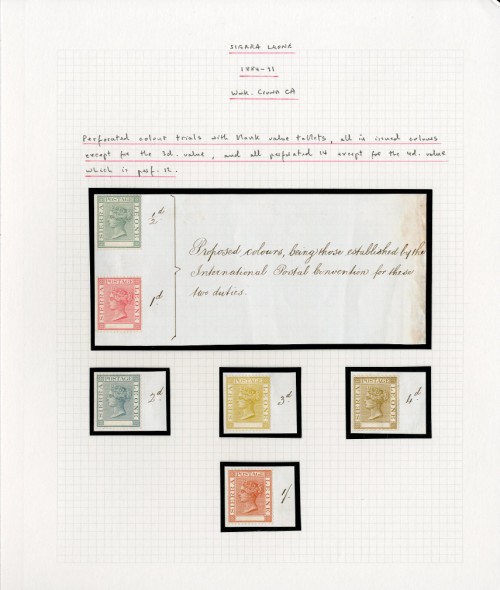 SIERRA LEONE
1884-91
Wmk. Crown CA
Perforated colour trials with blank value tablets, all in issued colours
except for the 3d. value, and all perforated 14 except for the 4d. value
which is perf. 12.
SIERRA POSTAGE LEONE
½d
Proposed colours, being those established by the
International Postal Convention for these
two duties.
SIERRA POSTAGE LEONE
1d.
SIERRA POSTAGE LEONE
2d.
SIERRA POSTAGE LEONE
3d.
SIERRA POSTAGE LEONE
4d.
SIERRA POSTAGE LEONE
1/.